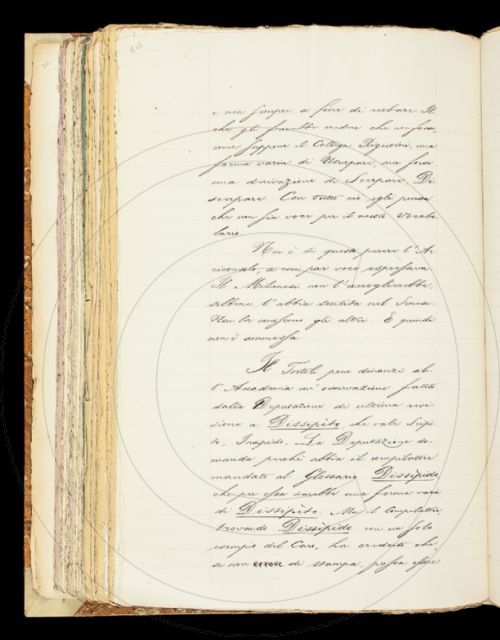 e non sempre a fine di rubare. Il
che gli farebbe vedere che non sia,
come suppone il Collega Tigurini, una
forma varia di Usurpare, ma forse
una derivazione di Scerpare, Di
scerpare. Con tutto ciò egli pensa
che non sia voce per il nostro Vocabo
lario.
Non è di questo parere l'Ar
ciconsolo, a cui par voce espressiva.
Il Milanesi non l'accoglierebbe,
sebbene l'abbia sentita nel Senese.
Non la conoscono gli altri. E quindi
non è ammessa.
Il Tortoli pone dinanzi al
l'Accademia un'osservazione fatta
dalla Deputazione di ultima revi
sione a Dissipito, che vale Scipi
to, Insipido. La Deputazione do
manda perché abbia il compilatore
mandato al Glossario Dissipido
che per essa sarebbe una forma varia
di Dissipito. Ma il Compilatore
trovando Dissipido in un solo
esempio del Caro, ha creduto che,
se non errore di stampa, possa essere